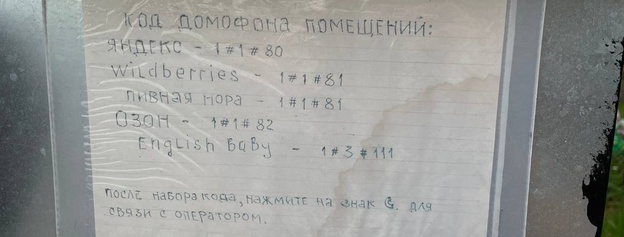 КОД ДОМОФОНА ПОМЕЩЕНИЙ:
ЯНДЕКС - 1#1#80
Wildberries - 1#1#81
ПИВНАЯ НОРА - 1#1#81
ОЗОН - 1#1#82
English BaBy - 1#3#111
ПОСЛЕ НАБОРА КОДА, НАЖМИТЕ НА ЗНАК С. ДЛЯ
СВЯЗИ С ОПЕРАТОРОМ.